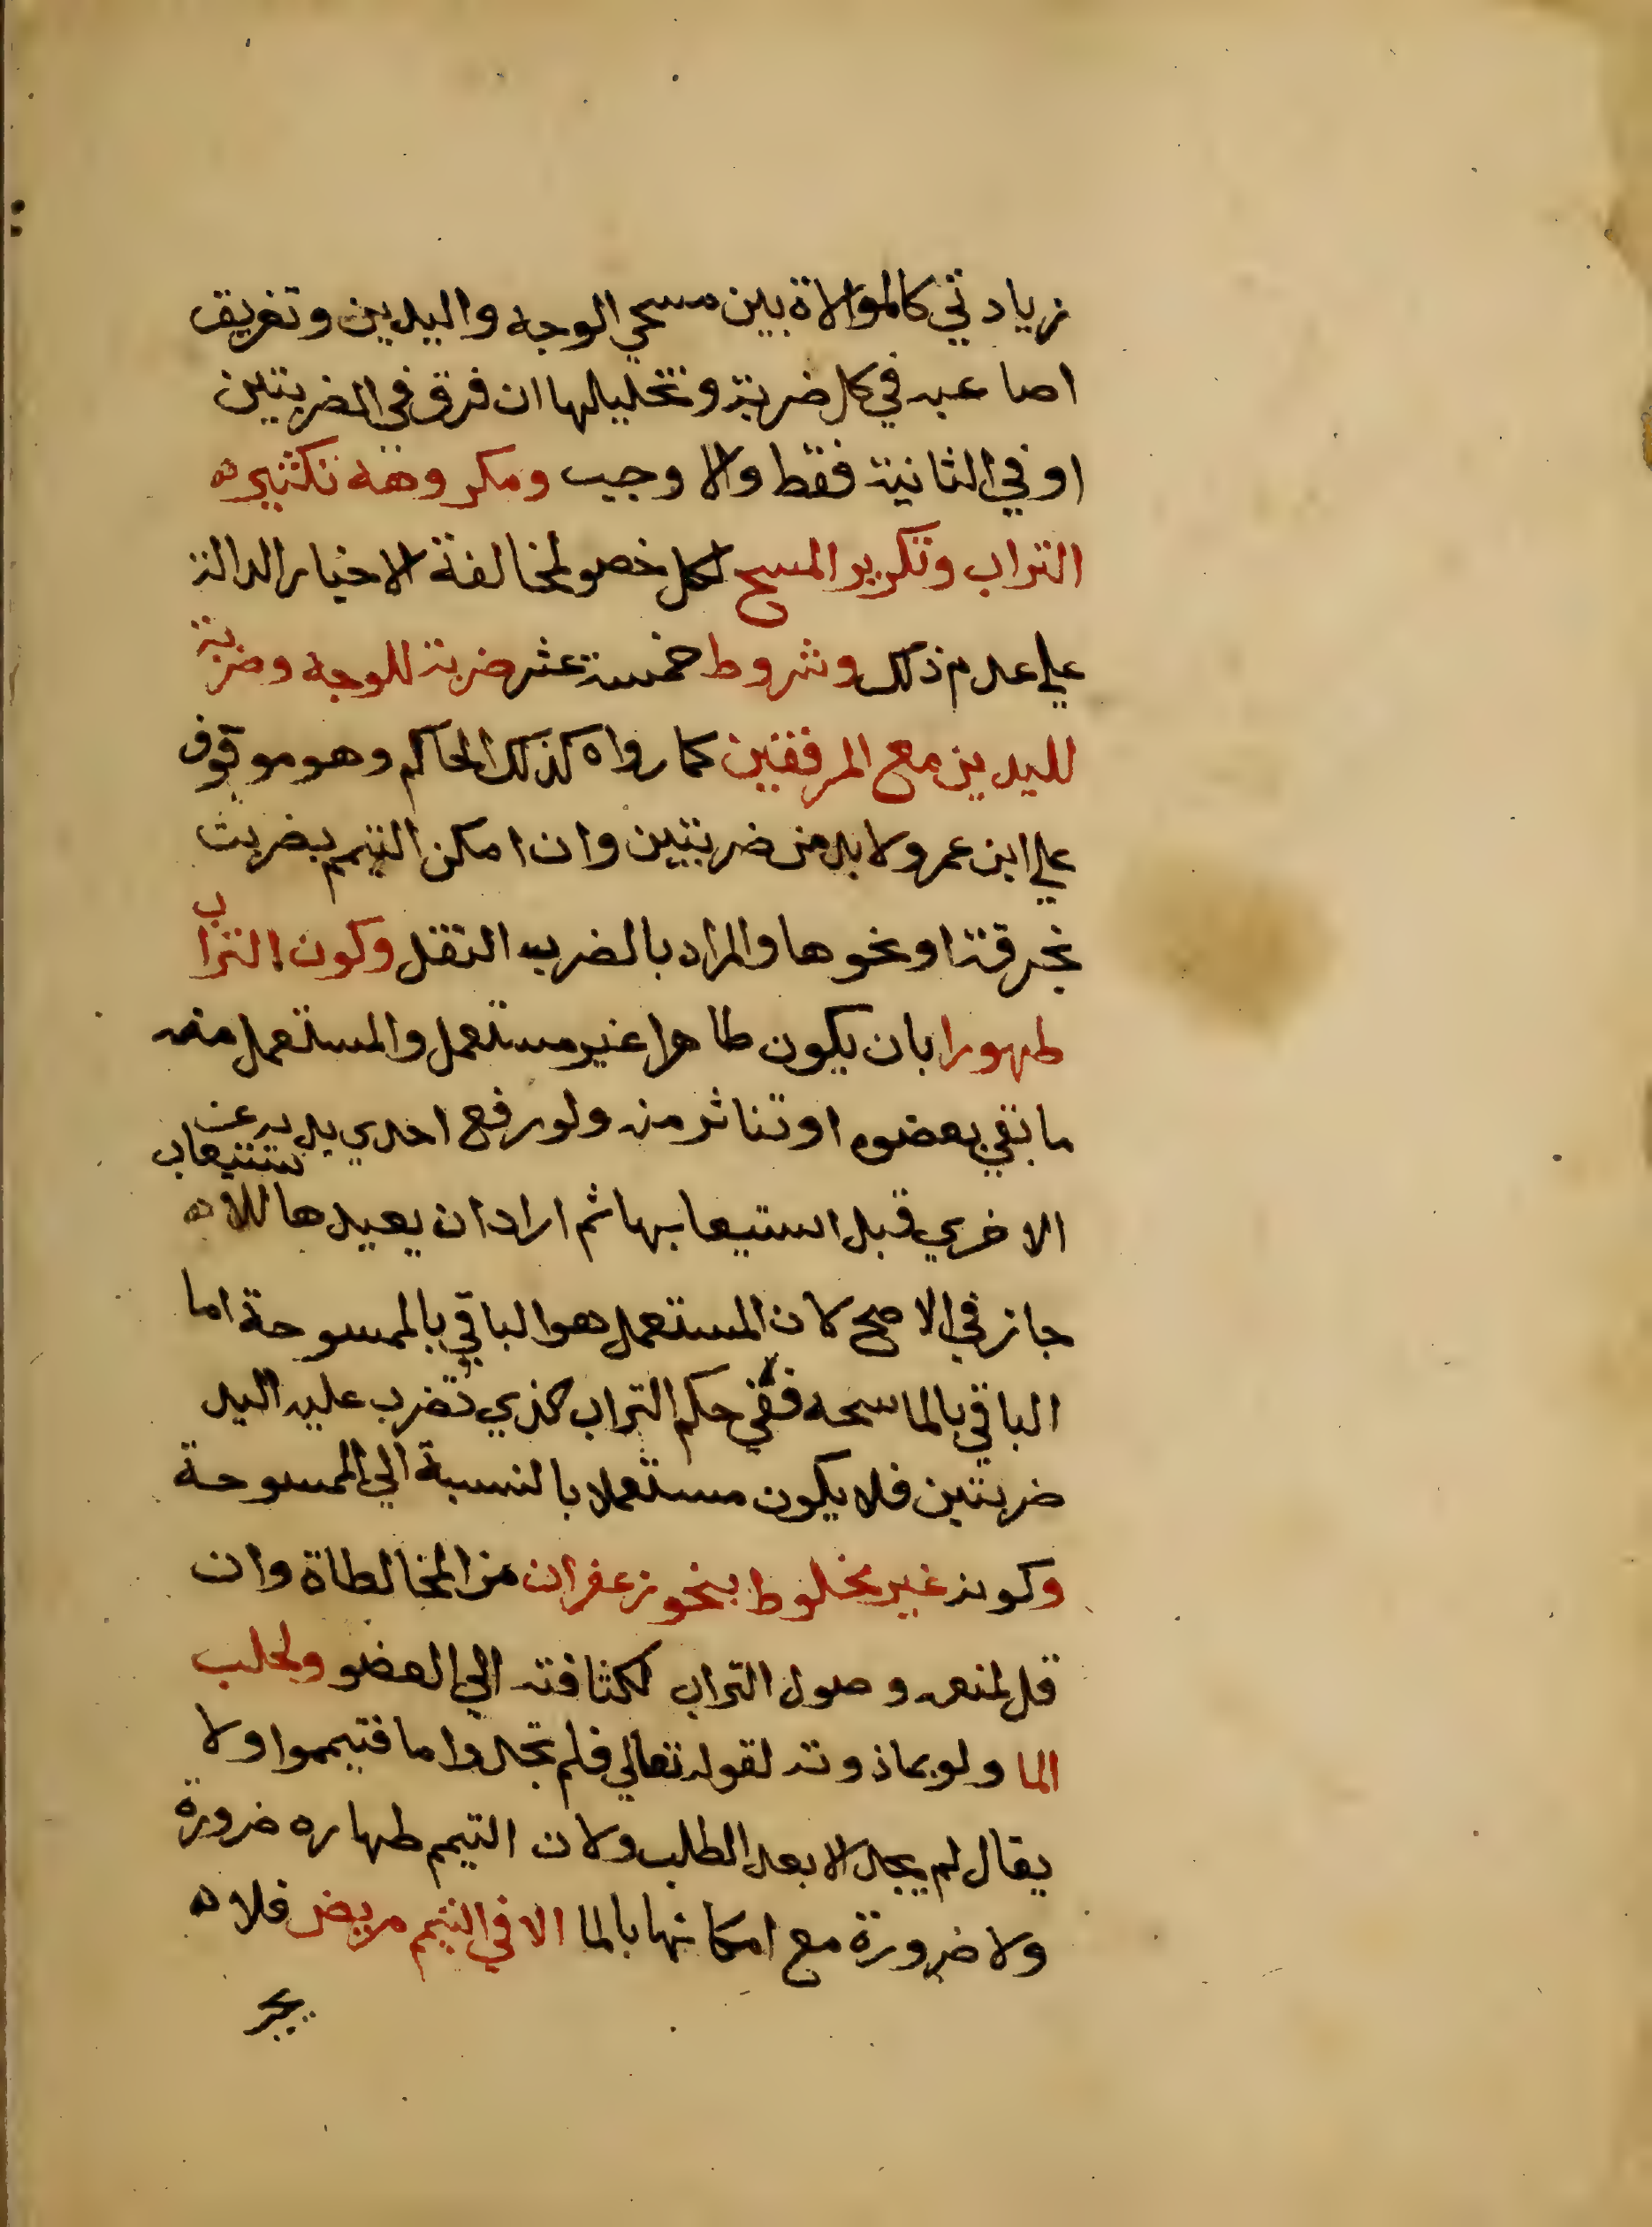 زيادتي كالموالاة بين مسحي الوجه واليدين وتفريق
اصابعه في كل ضربة وتخليلها ان فرق في الضربتين
او في الثانية فقط والا وجب ومكروهه تكثيره
التراب وتكرير المسح لكل خصو لمخالفة الاخبار الدالة
علي عدم ذلك وشروط خمسة عشر ضربة للوجه وضربة
لليدين مع المرفقين كما رواه كذلك الحاكم وهو موقوف
علي ابن عمر ولا بد من ضربتين وان امكن التيمم بضربة
بخرقة او نحوها والمراد بالضرب النقل وكون التراب
طهورا بان يكون طاهرا غير مستعمل والمستعمل منه
ما بقي بعضوه او تناثر منه ولو رفع احدي يديه عن
الاخري قبل استيعابها ثم اراد ان يعيدها للاستيعاب
جاز في الاصح لان المستعمل هو الباقي بالممسوحة اما
الباقي بالماسحه ففي حكم التراب الذي تضرب عليه اليد
ضربتين فلا يكون مستعملا بالنسبة الي الممسوحة
وكونه غير مخلوط بنحو زعفران من المخالطاة وان
قل لمنعه وصول التراب لكثافته الي العضو ولطلب
الما ولو بماذونه لقوله تعالي فلم تجدوا ما فتيمموا ولا
يقال لم يجد الا بعد الطلب ولان التيمم طهاره ضرورة
ولا ضرورة مع امكانها بالما الا في التيمم مريض فلا
يجب